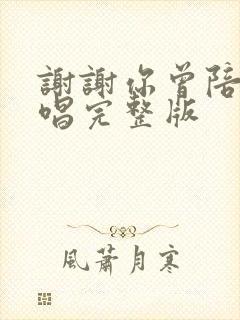 謝謝你曾陪
唱完整版
風蕭月寒